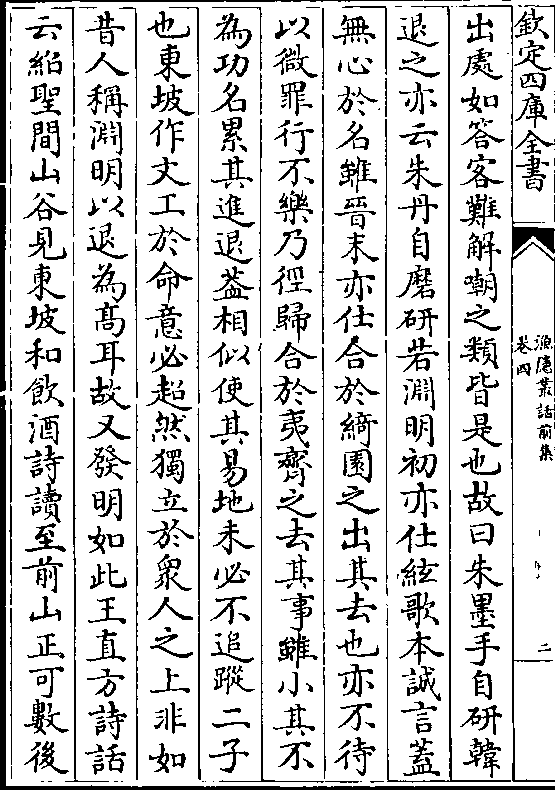 欽定四庫全書
漁隱叢話前集
卷四
二
出處如答客難解嘲之類皆是也故曰朱墨手自研韓
退之亦云朱丹自磨研若淵明初亦仕絃歌本誠言蓋
無心於名雖晉末亦仕合於綺園之出其去也亦不待
以微罪行不樂乃徑歸合於夷齊之去其事雖小其不
為功名累其進退蓋相似使其易地未必不追蹤二子
也東坡作文工於命意必超然獨立於衆人之上非如
昔人稱淵明以退為髙耳故又發明如此王直方詩話
云紹聖間山谷見東坡和飲酒詩讀至前山正可數後